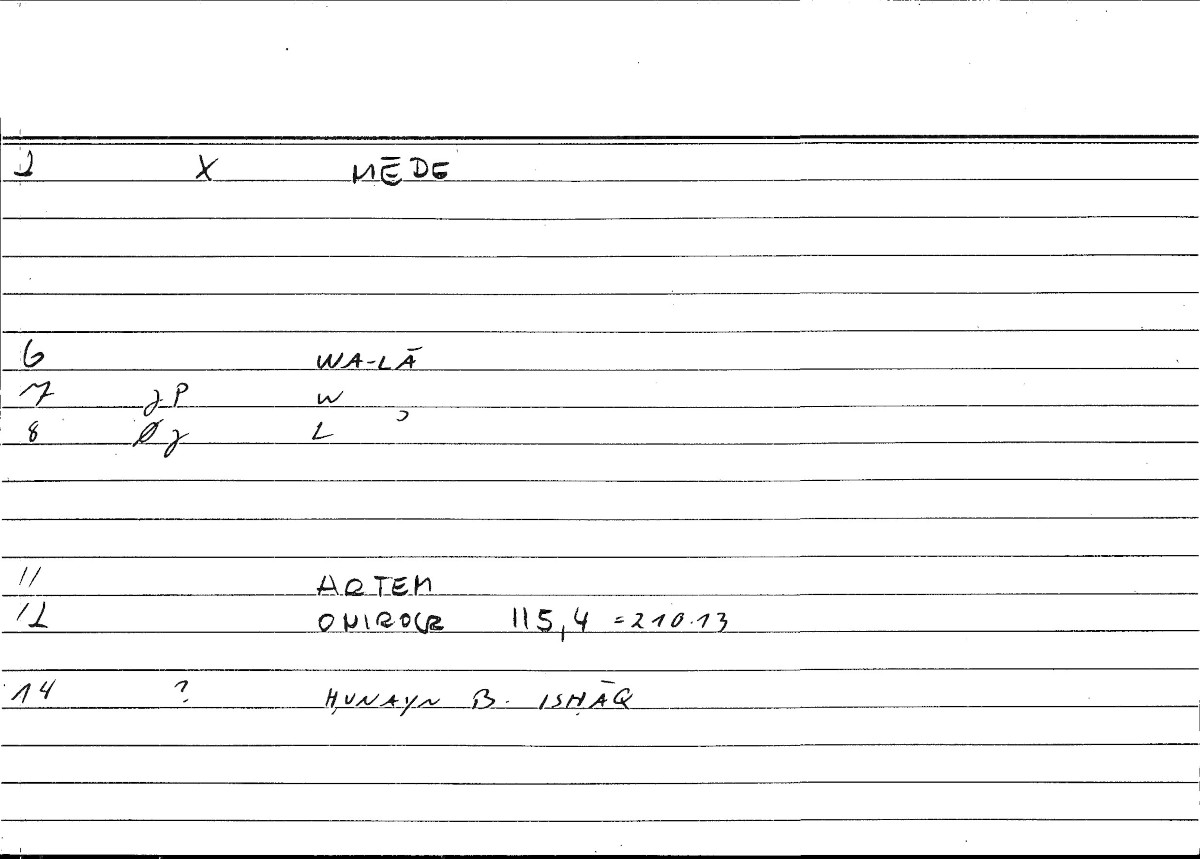 2 X MĒDE
6 WA-LĀ
7 P W
8 L
11 ARTEM
12 ONIROCR 115,4 =210.13
14 ? ḤUNAYN B. ISḤĀQ